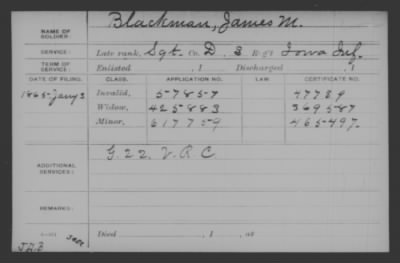 NAME OF SOLDIER: Blackman, James M.
SERVICE: Late rank, Sgt. Co. D, 3 Reg't Iowa Inf.
TERM OF SERVICE: Enlisted , 1 Discharged , 1
DATE OF FILING. CLASS. APPLICATION NO. LAW CERTIFICATE NO.
1865-Jany 3 Invalid, 57857 47789
Widow, 425883 369587
Minor, 617759 465497.
ADDITIONAL SERVICES: G. 22. V.R.C.
REMARKS:
Died , 1 , at